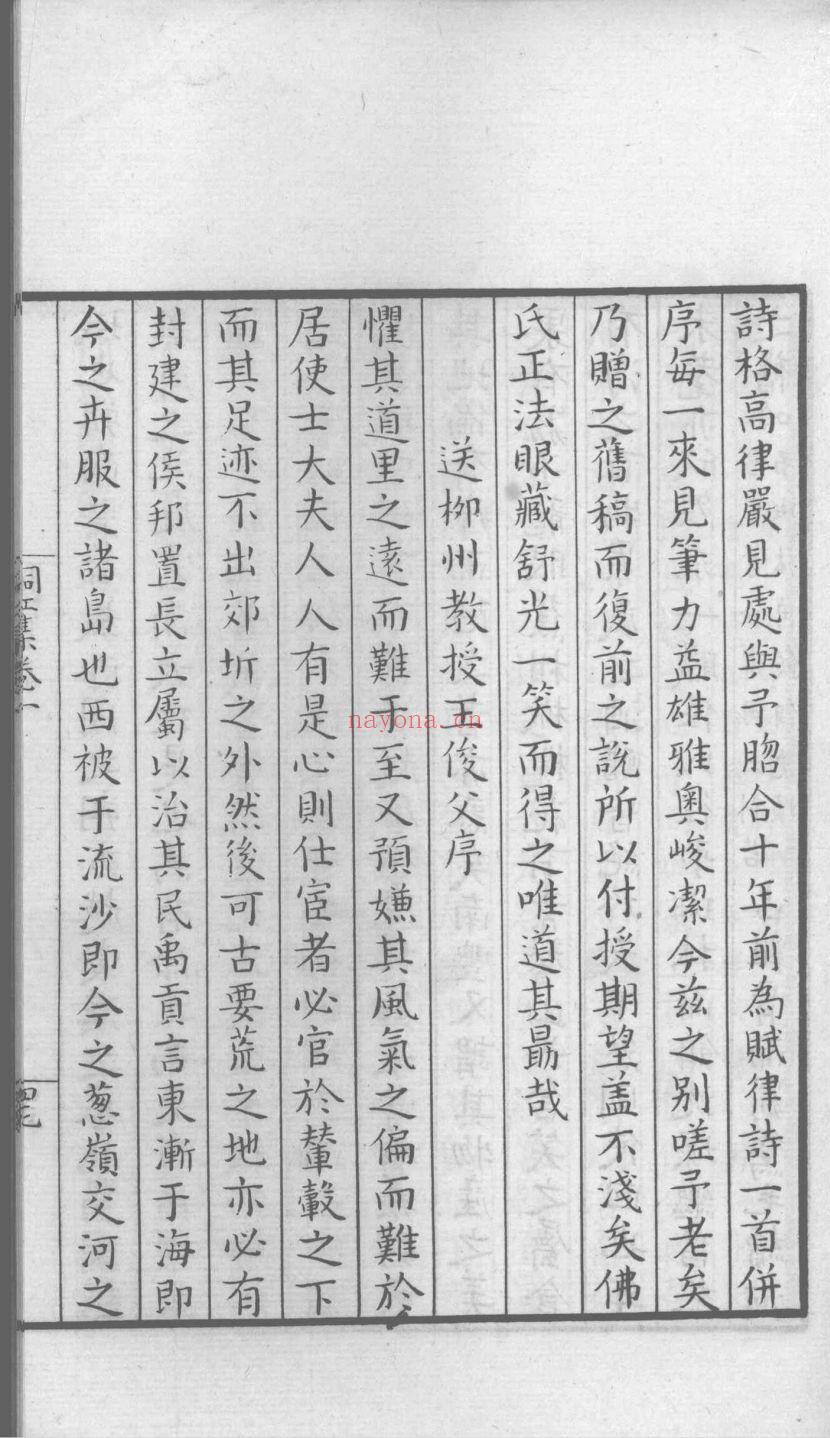 詩格高律嚴見處與予脗合十年前為賦律詩一首併
序每一來見筆力益雄雅奧峻潔今兹之别嗟予老矣
乃贈之舊稿而復前之說所以付授期望盖不淺矣佛
氏正法眼藏舒光一笑而得之唯道其勗哉
送柳州教授王俊父序
懼其道里之遠而難于至又預嫌其風氣之偏而難於
居使士大夫人人有是心則仕宦者必官於輦轂之下
而其足迹不出郊圻之外然後可古要荒之地亦必有
封建之侯邦置長立屬以治其民禹貢言東漸于海即
今之卉服之諸島也西被于流沙即今之葱嶺交河之
桐江集卷一
nayona.cn